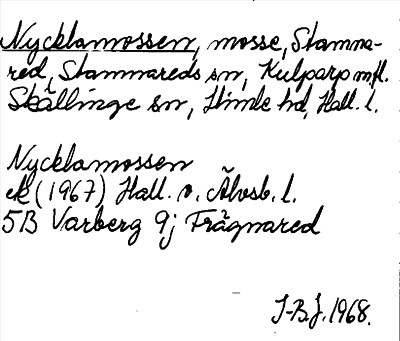 Nycklamossen, mosse, Stamna-
red, Stamnareds sn, Kulparp m.fl.
Skällinge sn, Himle hd, Hall. l.
Nycklamossen
ek (1967) Hall. o. Älvsb. l.
5B Varberg 9j Frägnared
J-B.J. 1968.